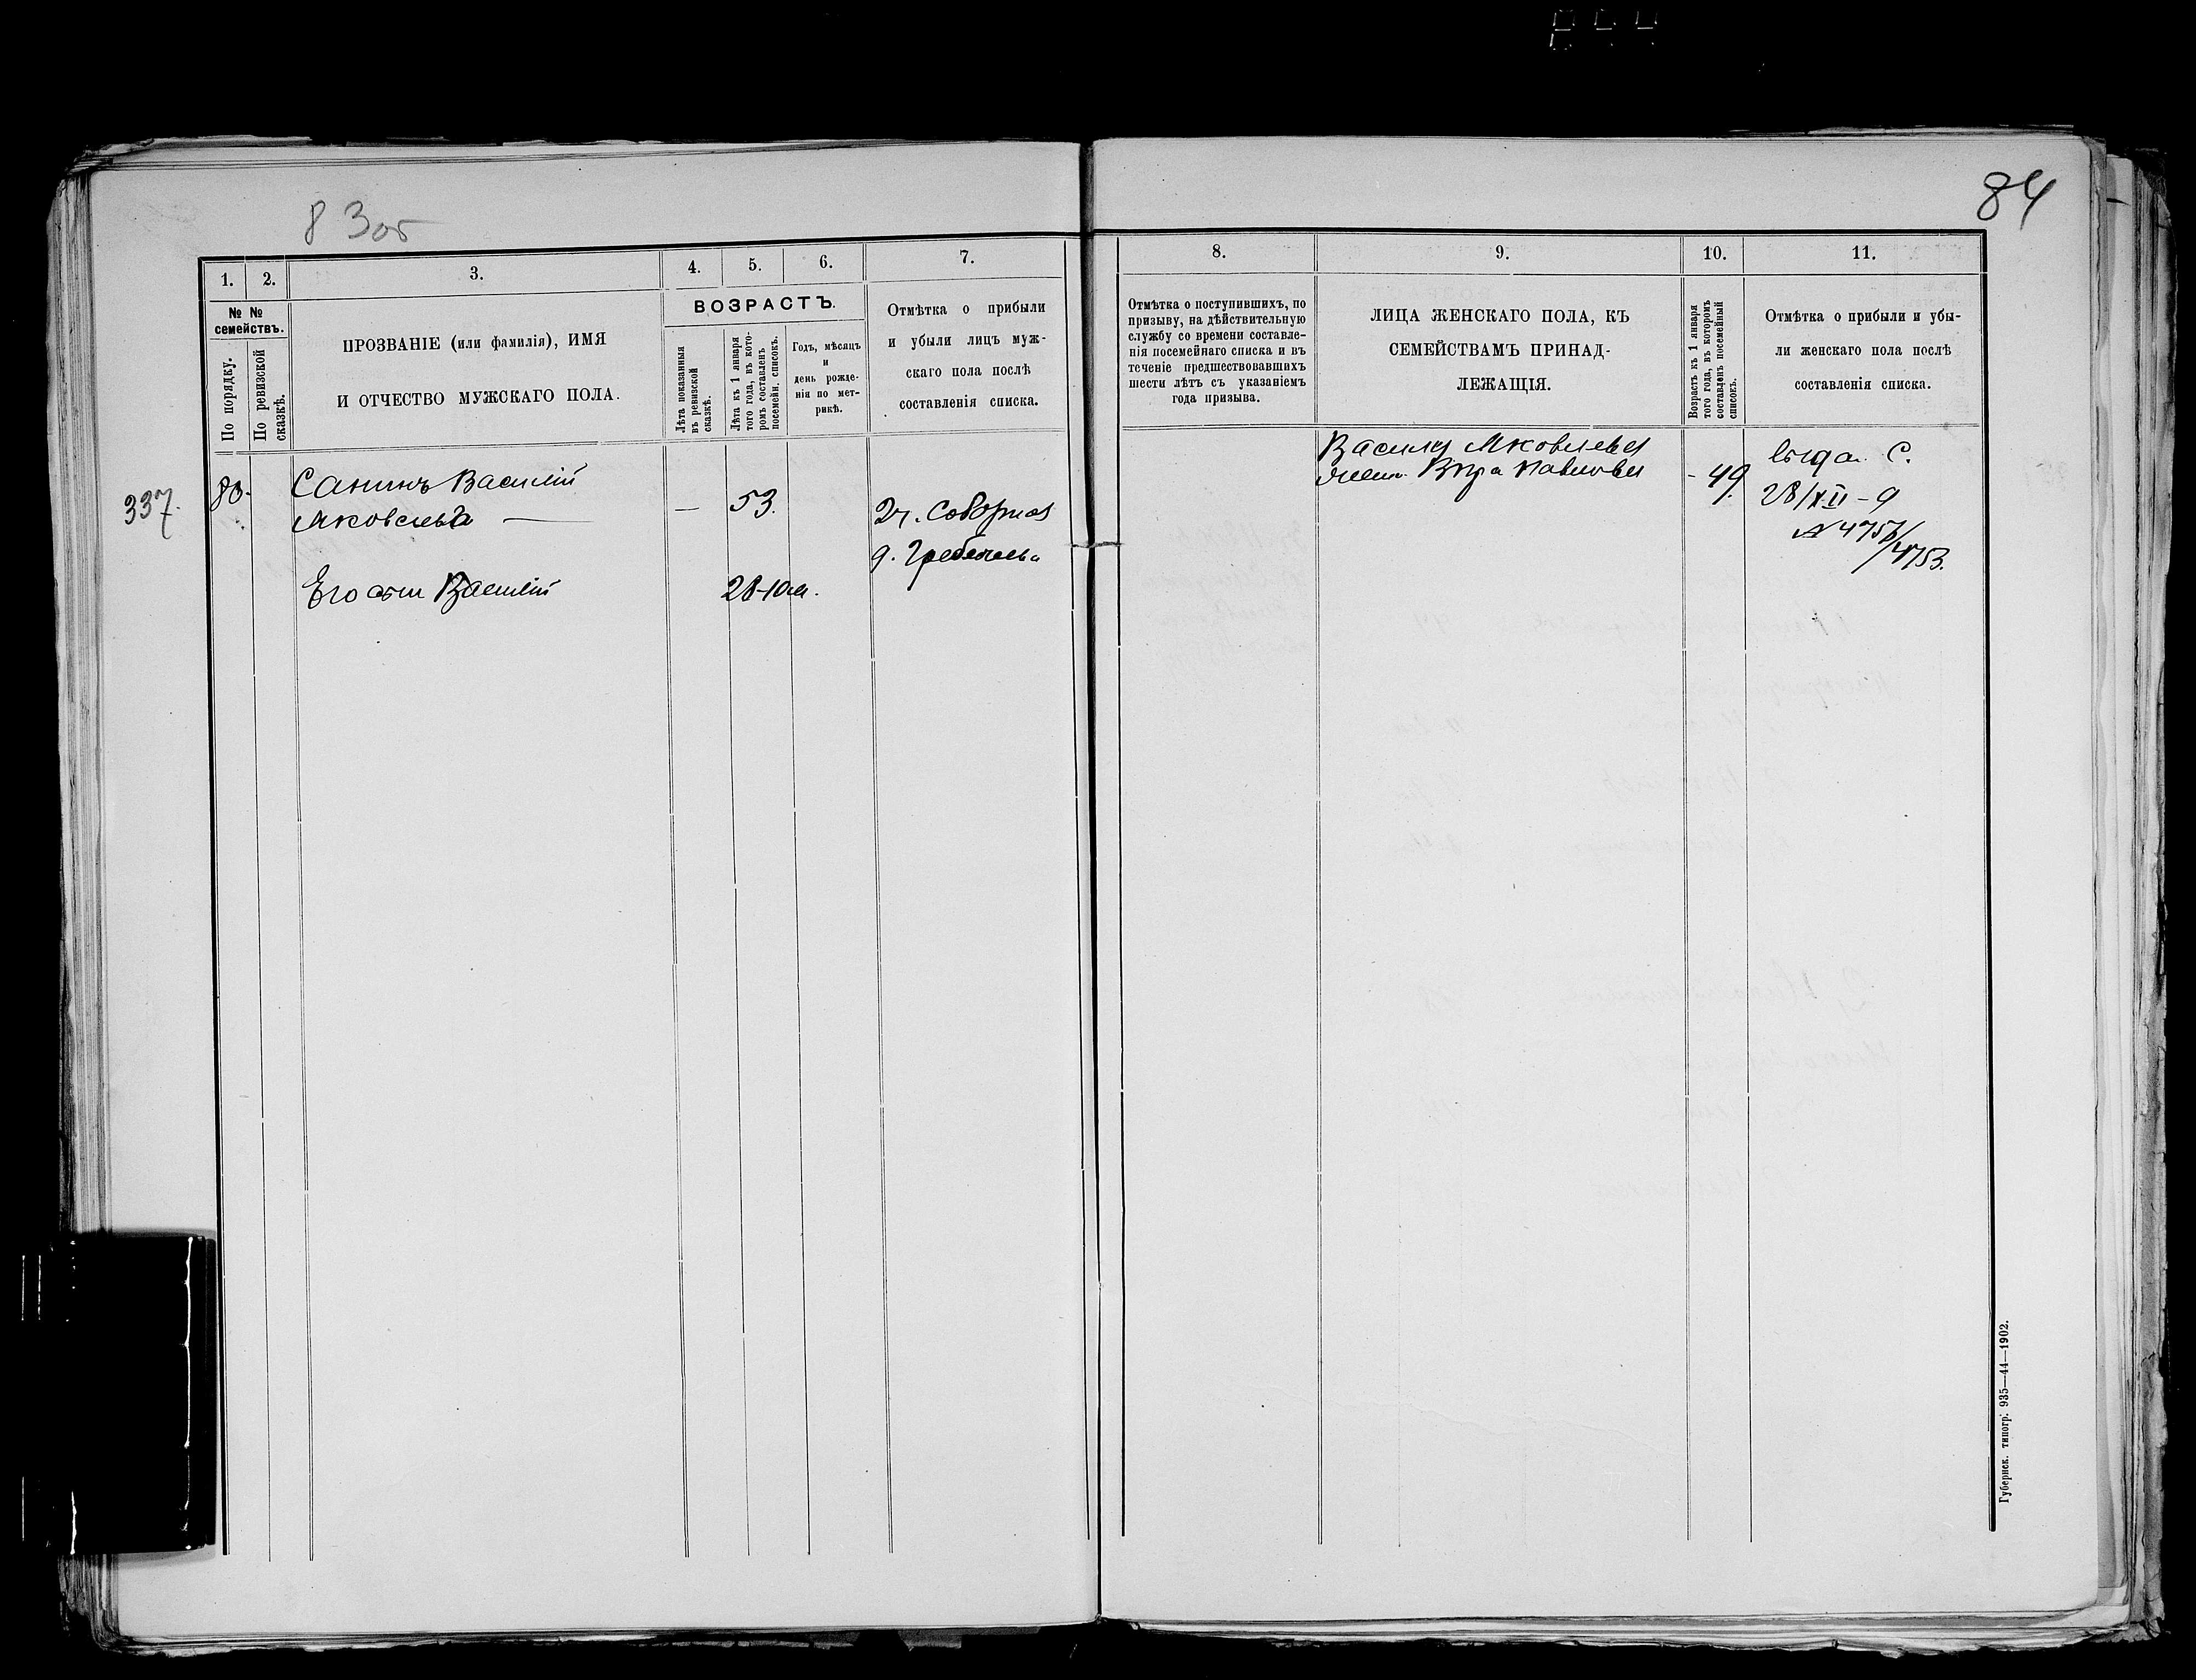 83об
84
1.
2.
3.
4.
5.
6.
7.
№ №
семействъ.
По порядку.
По ревизской
сказкѣ.
ПРОЗВАНІЕ (или фамилія), ИМЯ
И ОТЧЕСТВО МУЖСКАГО ПОЛА.
ВОЗРАСТЪ.
Лѣта показанныя
въ ревизской
сказкѣ.
Лѣта къ 1 января
того года, въ кото-
ромъ составленъ
посемейн. списокъ.
Годъ, мѣсяцъ
и
день рожде-
нія по мет-
рикѣ.
Отмѣтка о прибыли
и убыли лицъ муж-
скаго пола послѣ
составленія списка.
337.
80.
Санинъ Василій
Яковлевъ
—
53.
2ч. Соборная
д.
Его сын Василій
28-10м.
8.
9.
10.
11.
Отмѣтка о поступившихъ, по
призыву, на дѣйствительную
службу со времени составле-
нія посемейнаго списка и въ
теченіе предшествовавшихъ
шести лѣтъ съ указаніемъ
года призыва.
ЛИЦА ЖЕНСКАГО ПОЛА, КЪ
СЕМЕЙСТВАМЪ ПРИНАД-
ЛЕЖАЩІЯ.
Возрастъ къ 1 января
того года, въ которомъ
составленъ посемейный
списокъ.
Отмѣтка о прибыли и убы-
ли женскаго пола послѣ
составленія списка.
Василія Яковлева
жена Вѣра Павлова
- 49.
выда. С.
28/XII - 9
№
4753.
Губернск. типогр. 935—44—1902.